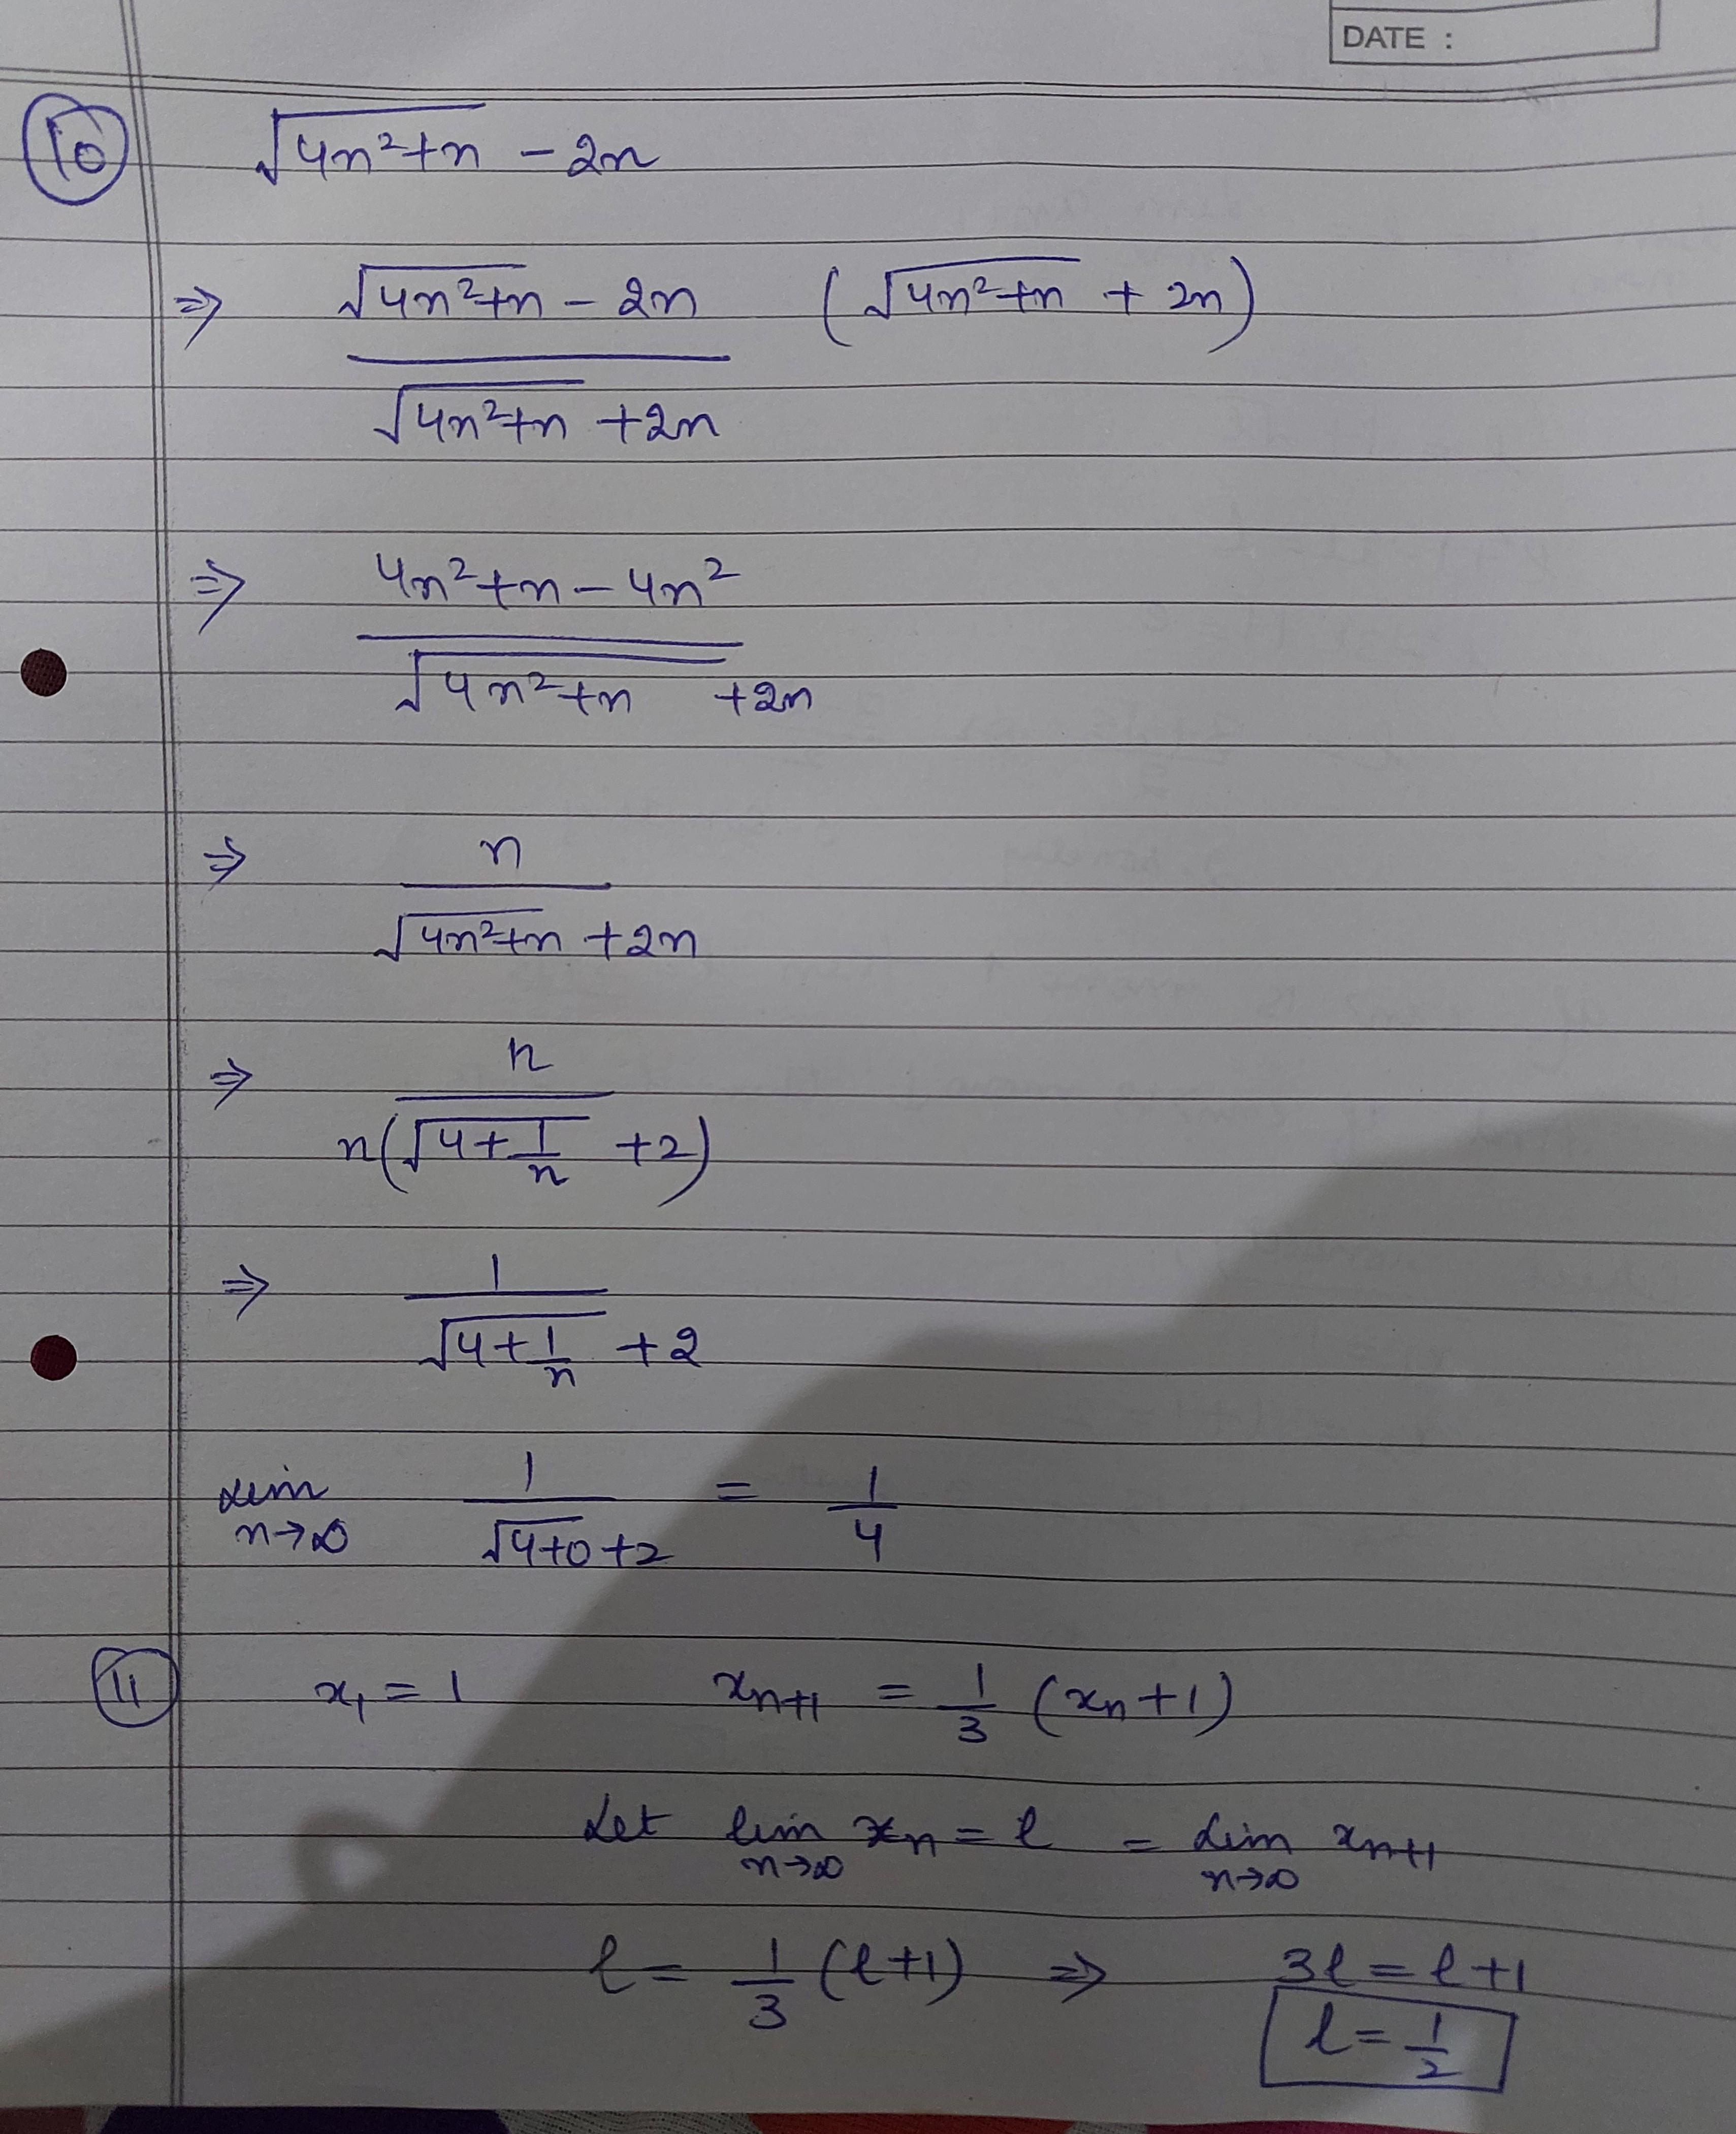 DATE :
10 √(4n²+n) - 2n
⇒ (√(4n²+n) - 2n)/(√(4n²+n) + 2n) (√(4n²+n) + 2n)
⇒ (4n²+n-4n²)/(√(4n²+n) + 2n)
⇒ n/(√(4n²+n) + 2n)
⇒ n/(n(√(4+1/n) + 2))
⇒ 1/(√(4+1/n) + 2)
lim n→∞ 1/(√(4+0) + 2) = 1/4
11 x₁ = 1 xₙ₊₁ = 1/3 (xₙ+1)
Let lim n→∞ xₙ = l = lim n→∞ xₙ₊₁
l = 1/3 (l+1) ⇒ 3l = l+1
l = 1/2